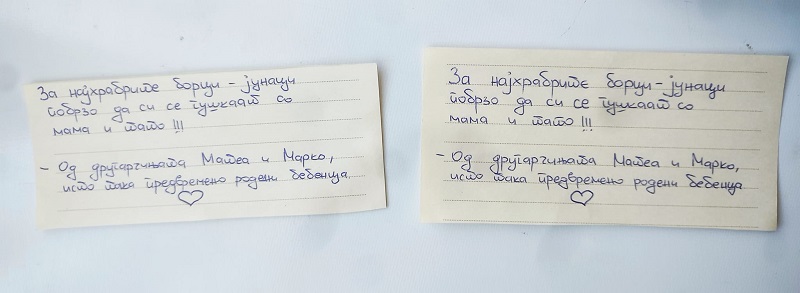 За најхрабрите борци - јунаци
побрзо да си се гушкаат со
мама и тато!!!
- Од другарчињата Матеа и Марко,
исто така предвремено родени бебенца
♡
За најхрабрите борци - јунаци
побрзо да си се гушкаат со
мама и тато!!!
- Од другарчињата Матеа и Марко,
исто така предвремено родени бебенца
♡